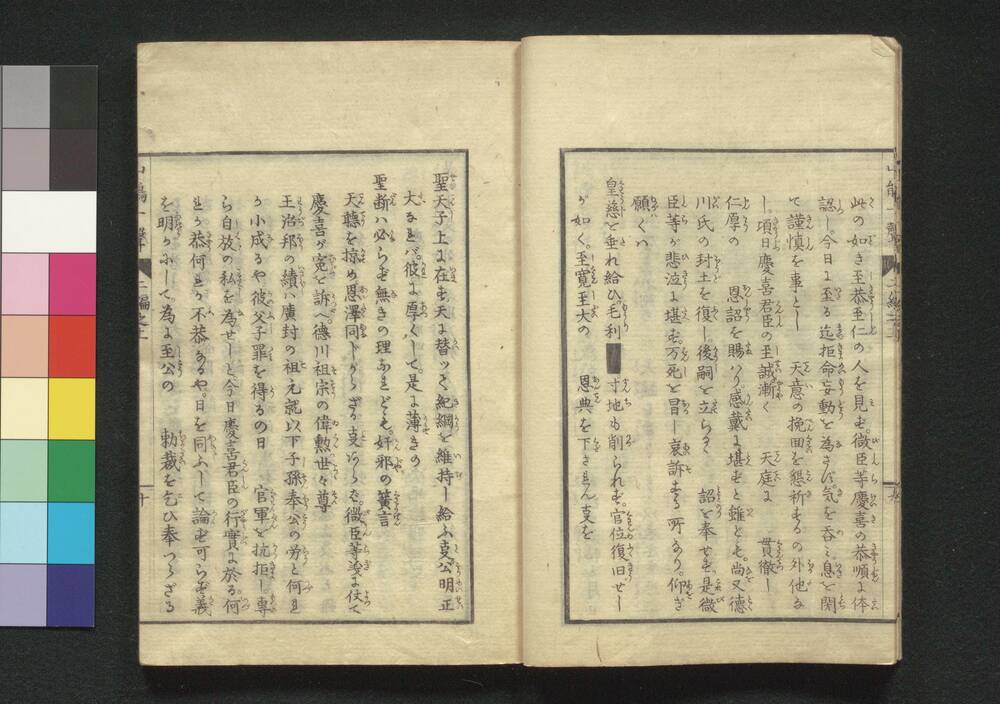 此の如き至恭至仁の人を見ず。微臣等慶喜の恭順に体
認し。今日に至る迄拒命妄動を為さず。気を呑ミ息を閉
て謹慎を事とし　天意の挽回を懇祈するの外他な
し。頃日慶喜君臣の至誠漸く　天庭に　貫徹し
仁厚の　恩詔を賜ハり。感戴に堪ずと雖ども。尚又徳
川氏の封土を復し。後嗣を立らるゝ　詔を奉せず。是微
臣等が悲泣に堪ず。万死を冒し哀訴する所なり。仰ぎ
願くハ
皇慈を垂れ給ひ。毛利　寸地も削られず。官位復旧せし
が如く。至寛至大の　恩典を下されん事を
聖天子上に在す。天に替ッて紀綱を維持し給ふ事。公明正
大なれバ。彼に厚くして。是に薄きの
聖断ハ必らず無きの理なれども。奸邪の簧言
天聴を掠め恩澤同じからざる事あらバ。微臣等義に仗て
慶喜が冤を訴へ。徳川祖宗の偉勲世々尊
王治邦の績ハ廣封の祖元就以下子孫奉公の労と何れ
か小成るや彼父子罪を得るの日　官軍を抗拒し専
ら自放の私を為せしと今日慶喜君臣の行實に於る。何
れが恭何れが不恭なるや。日を同ふして論ず可らず。義
を明かにして為に至公の　勅裁を乞ひ奉つらざる
十